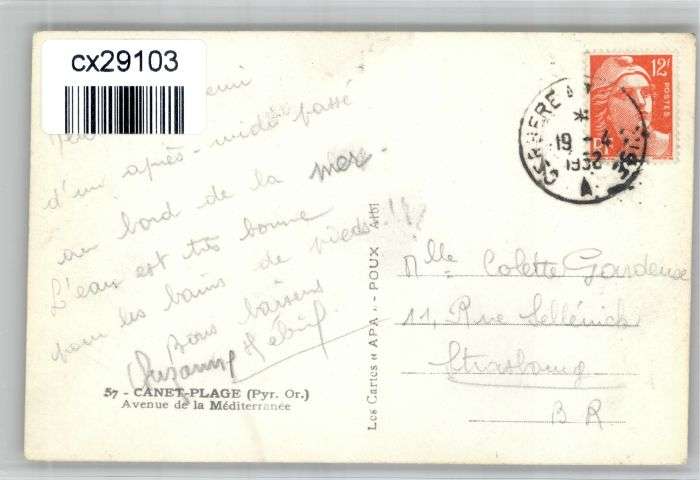 cx29103
d'un après-midi passé
au bord de la mer.
L'eau est très bonne
pour les bains de pieds!!!
Bons baisers
Suzanne
57 - CANET-PLAGE (Pyr. Or.)
Avenue de la Méditerranée
Les Cartes "APA" - POUX Albi
12F
POSTES
CERBERE
19 - 4
A
Mlle Colette
11, Rue Sellénick
Strasbourg
B R